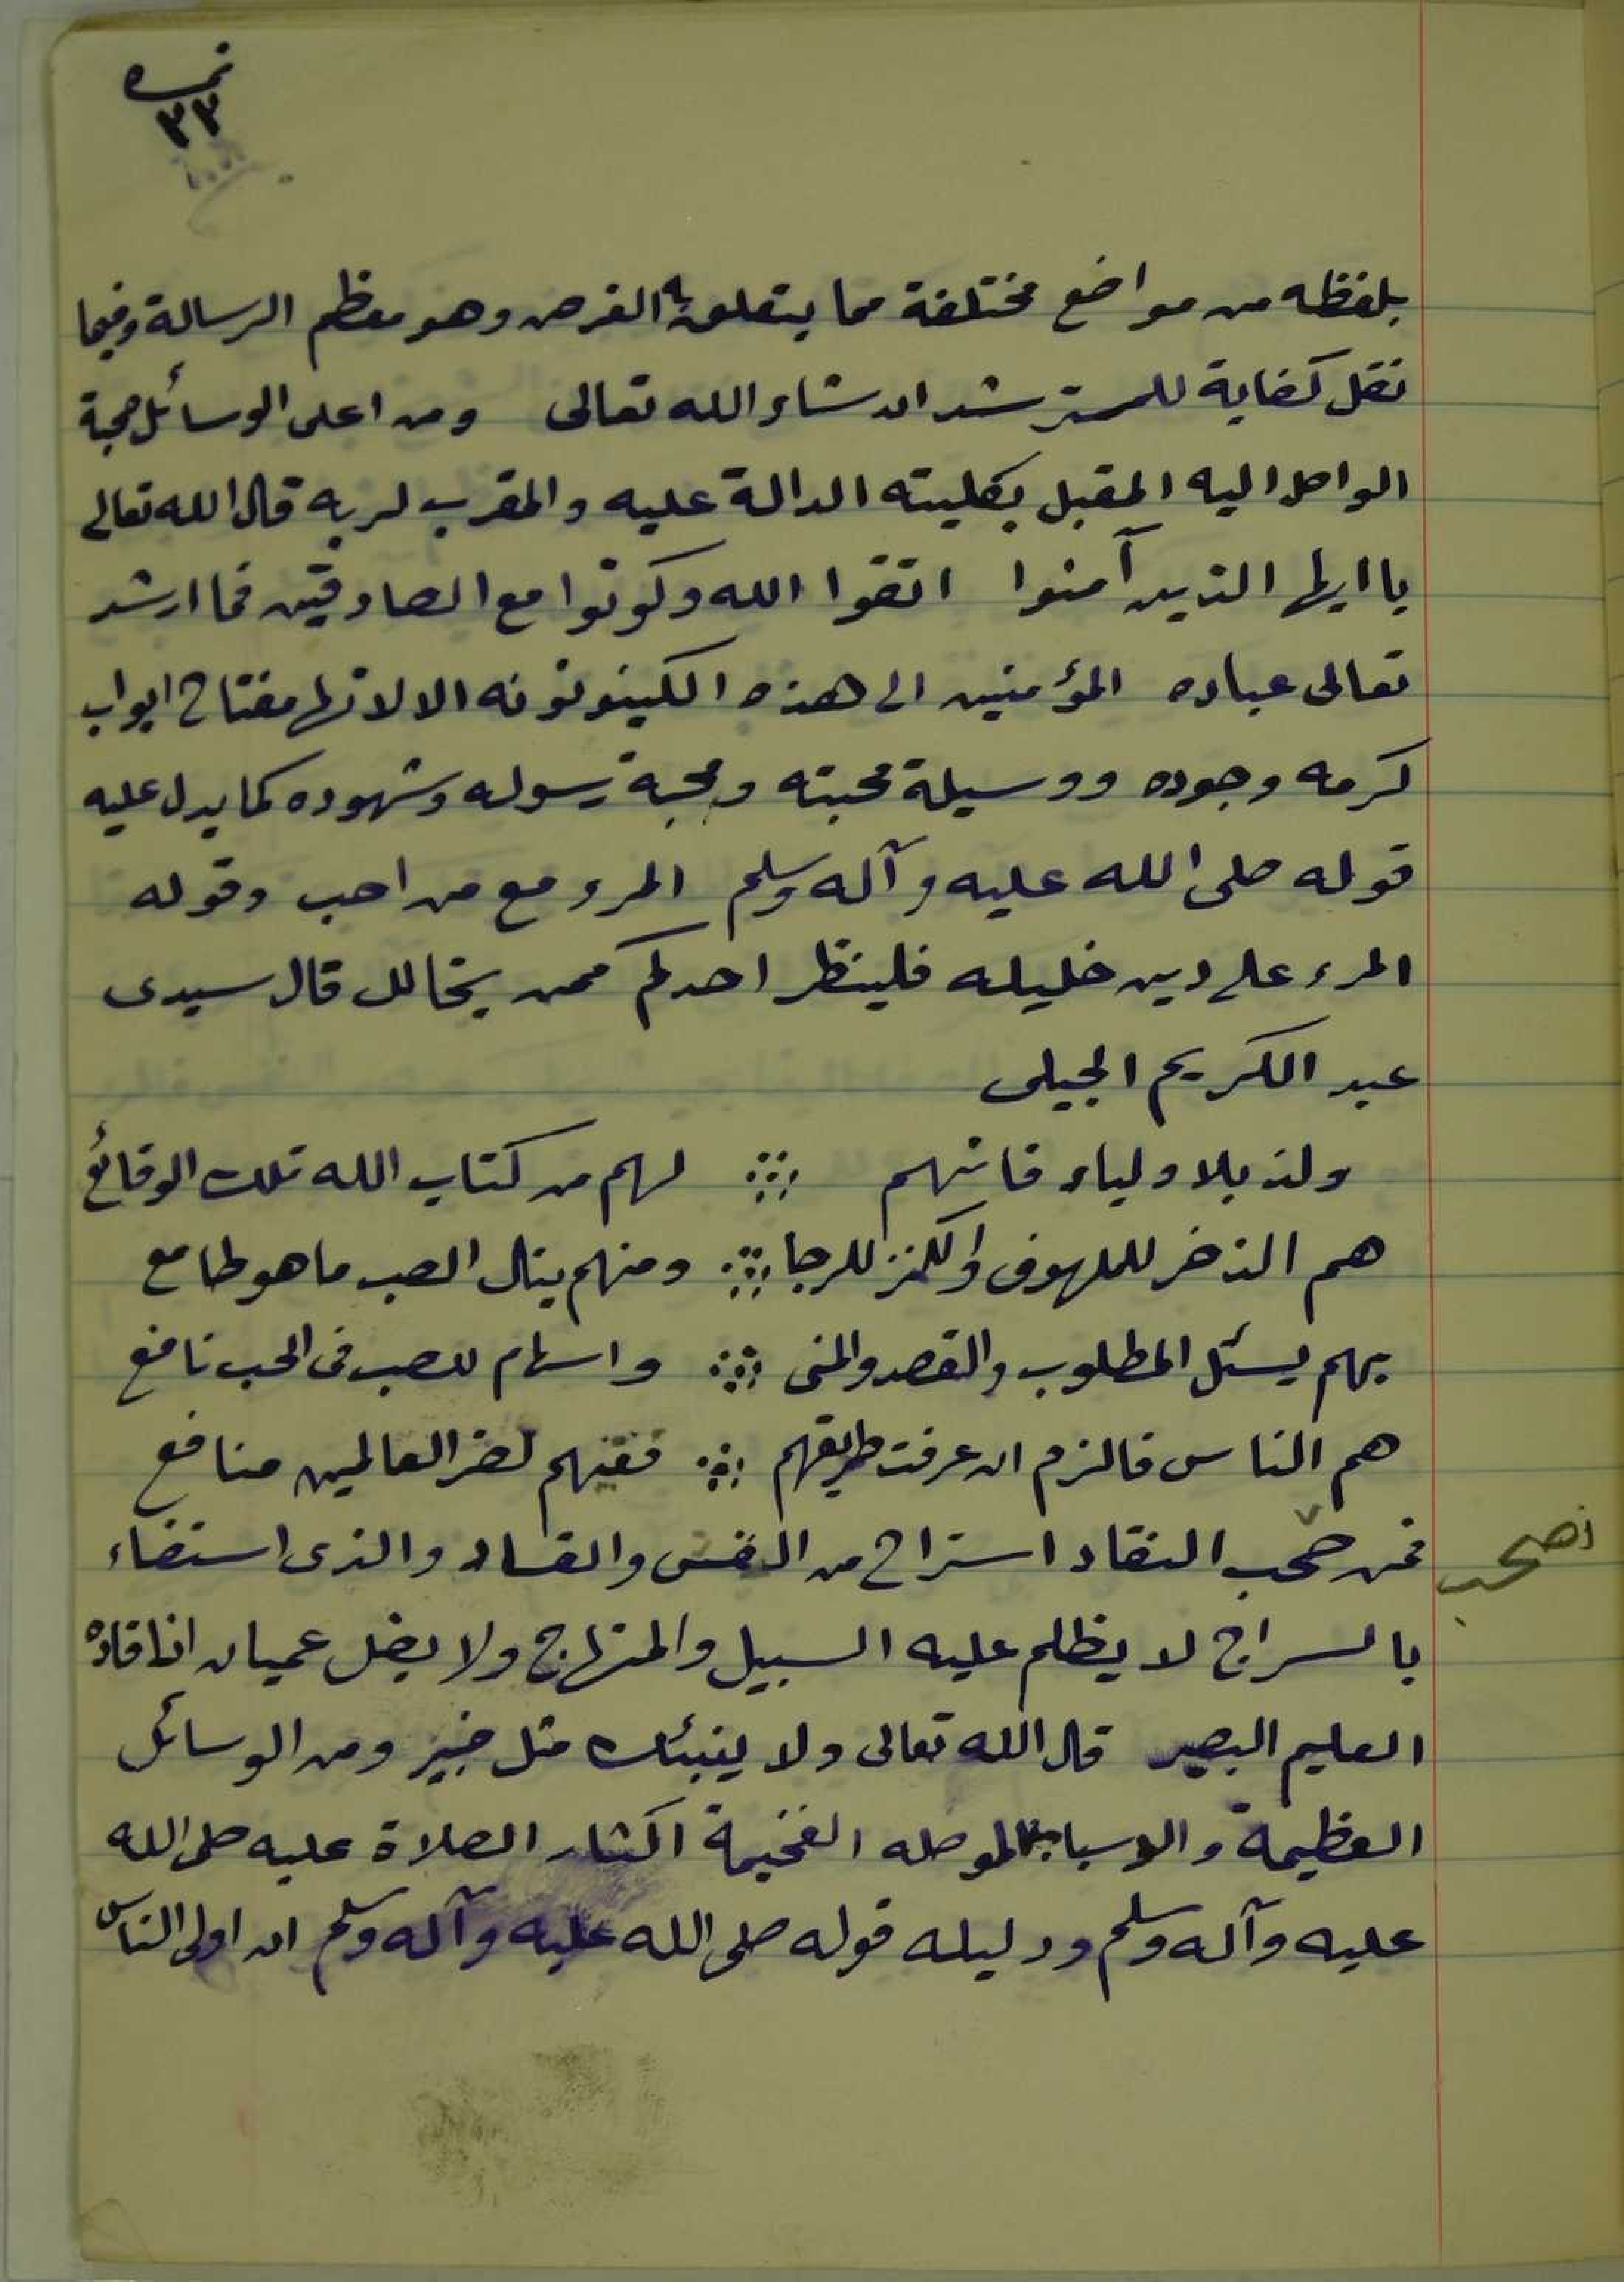 نمرة
٣٣
بلفظه من مواضع مختلفة مما يتعلق به الغرض وهو معظم الرسالة وفيما
نقل كفاية للمسترشد ان شاء الله تعالى ومن اعلى الوسائل محبة
الواصل اليه المقبل بكليته الدالة عليه والمقرب لربه قال الله تعالى
يا ايها الذين آمنوا اتقوا الله وكونوا مع الصادقين فما ارشد
تعالى عباده المؤمنين الى هذه الكينونونه الا لانها مفتاح ابواب
كرمه وجوده ووسيلة محبته ومحبة رسوله وشهوده كما يدل عليه
قوله صلى الله عليه وآله وسلم المرء مع من احب وقوله
المرء على دين خليله فلينظر احدكم ممن يخالل قال سيدى
عبد الكريم الجيلى
ولذ بلاولياء فانهم ∴ لهم من كتاب الله تلك الوقائع
هم الذخر للملهوف والكنز للرجا ∴ ومنهم ينال الصب ما هو طامع
بهم يسئل المطلوب والقصد والمنى ∴ واسهام للصب فى الحب نافع
هم الناس فالزم ان عرفت طريقهم ∴ ففيهم لضر العالمين منافع
فمن صحب النقاد استراح من الغش والفساد والذى استضاء
اصحب
بالسراج لا يظلم عليه السبيل والمنهاج ولا يضل عميان اذا قاده
العليم البصير قال الله تعالى ولا ينبئك مثل خبير ومن الوسائل
العظيمة والاسباب الموصله الفخيمة اكثار الصلاة عليه صلى الله
عليه وآله وسلم ودليله قوله صلى الله عليه وآله وسلم ان اولى الناس